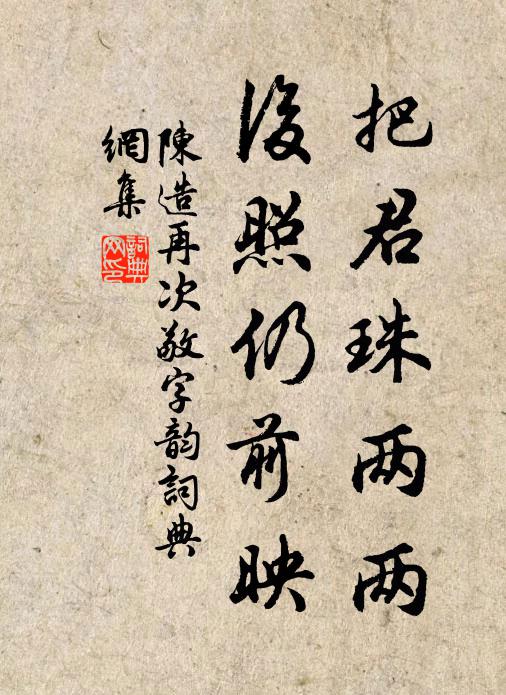 把君珠两两
後照仍前映
陳造再次敬字韵詞典
網集
詞典网印